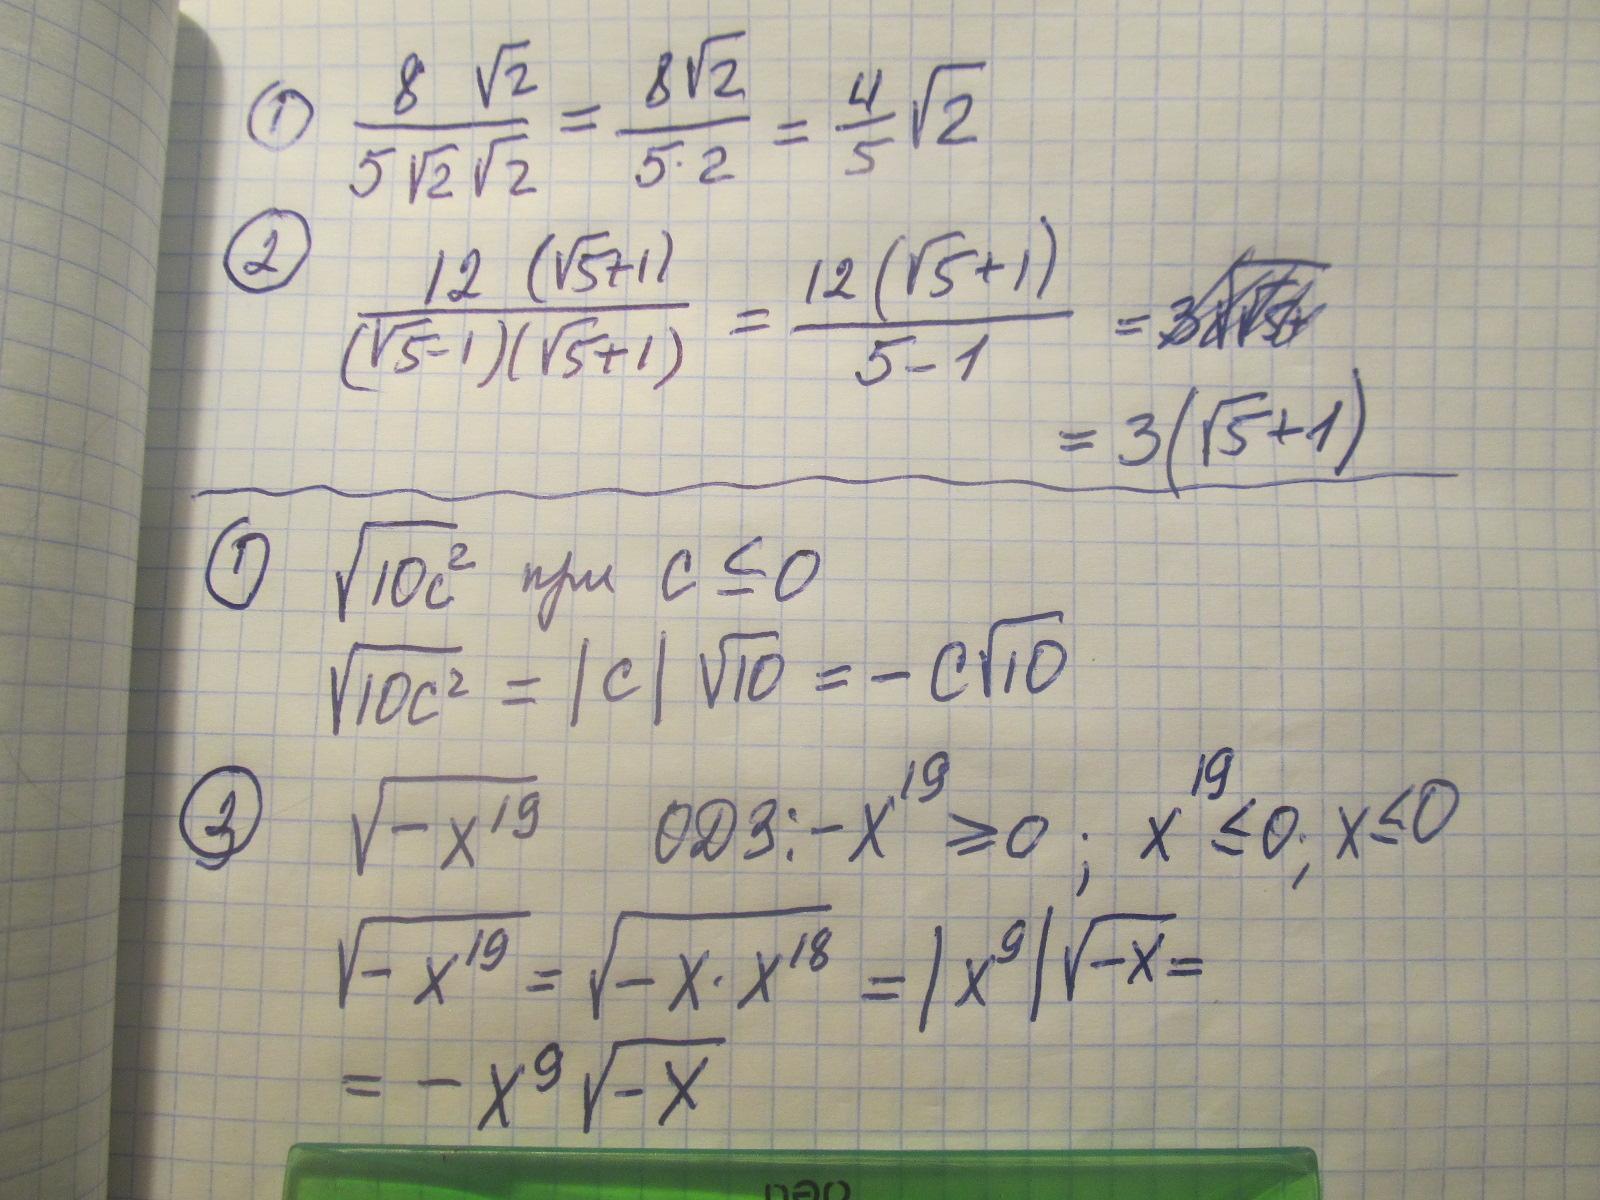 ① 8 √2 / 5√2 √2 = 8√2 / 5·2 = 4/5 √2
② 12 (√5+1) / (√5-1)(√5+1) = 12(√5+1) / 5-1 =
= 3(√5+1)
① √10c² при c ≤ 0
√10c² = |c| √10 = - c√10
③ √-x¹⁹ ОДЗ: -x¹⁹ ≥ 0 ; x¹⁹ ≤ 0; x ≤ 0
√-x¹⁹ = √-x·x¹⁸ = |x⁹| √-x =
= - x⁹ √-x